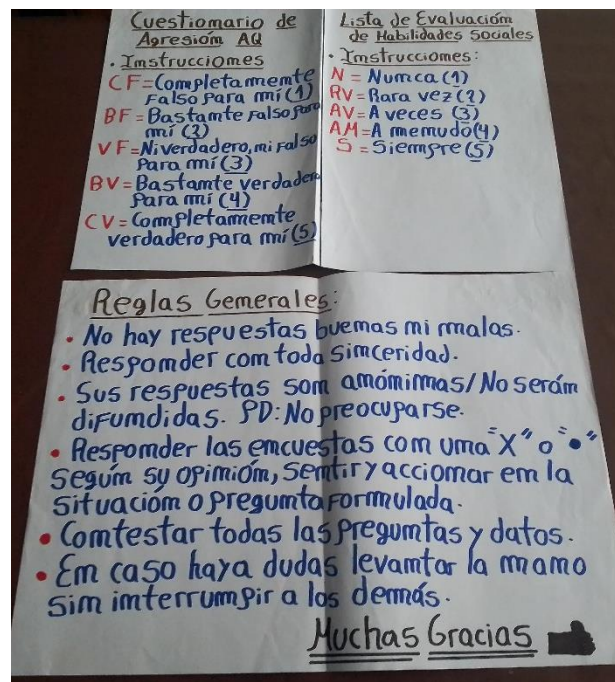 Cuestionario de
Agresión AQ
• Instrucciones
CF=Completamente
Falso para mí(1)
BF=Bastante Falso para
mí (2)
VF=Ni verdadero, ni Falso
Para mí(3)
BV=Bastante verdadero
Para mí (4)
CV=Completamente
verdadero para mí(5)
Lista de Evaluación
de Habilidades Sociales
• Instrucciones:
N = Nunca (1)
RV = Rara vez (2)
AV = A veces (3)
AM = A menudo (4)
S = Siempre (5)
Reglas Generales:
• No hay respuestas buenas ni malas.
• Responder con toda sinceridad.
• Sus respuestas son anónimas/No serán
difundidas. PD: No preocuparse.
• Responder las encuestas con una "X" o "●"
Según su opinión, sentir y accionar en la
situación o pregunta formulada.
• Contestar todas las preguntas y datos.
• En caso haya dudas levantar la mano
sin interrumpir a los demás.
Muchas Gracias